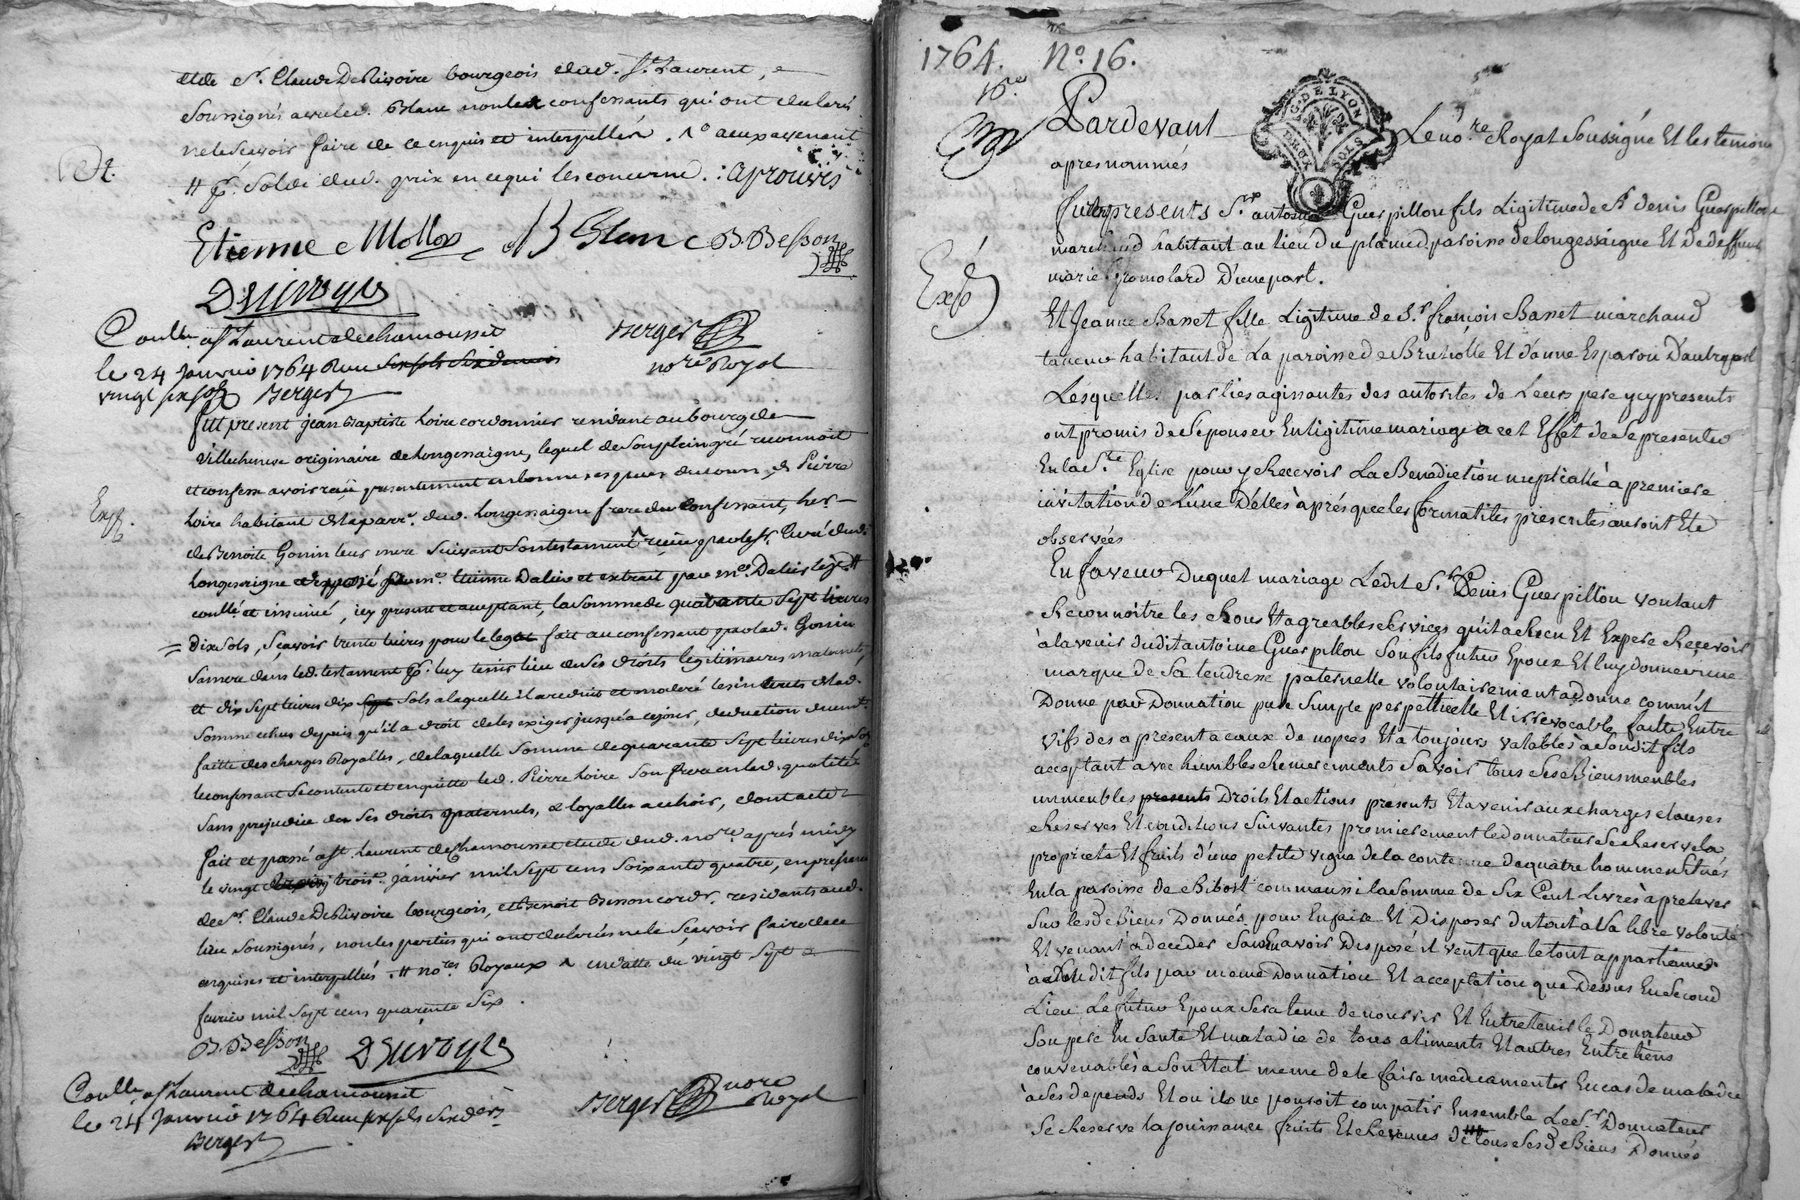 et de Sr. Claude DeRivoire bourgeois dud. St. Laurent, 
Soussignés avec led. Blanc non les confessants qui ont declarés
ne le Scavoir faire de ce enquis et interpellés. 
# pr. Solde dud. prix en ce qui les concerne. : aprouvés
Etienne Mollon Blanc B. Besson
DeRivoyre
Coullé a St Laurent de chamousset Berger
le 24 Janvier 1764 Reçu nore Royal
vingt six sols Berger
Fut present jean Baptiste Loire cordonnier residant au bourg de
Villecheneve originaire de Longessaigne, lequel de Son plein gré reconnoit
et confesse avoir reçu presentement en bonnes especes du cours, de Pierre
Exp.
Loire habitant de la parr. dud. Longessaigne frere du confessant, her-
de Benoite Gonin leur mere Suivant Son testament reçu par le Sr. Curé dud.
Longessaigne deposé
coullé et insinué, icy present et acceptant, la Somme de quarante Sept livres
dix Sols, Scavoir trente livres pour le legat fait au confessant par lad. Gonin
Sa mere dans led. testament pr. luy tenir lieu de Ses droits legitimaires maternels,
et dix Sept livres dix Sols a laquelle il a reduit et moderé les interets de lad.
Somme echus depuis qu'il a droit de les exiger jusqu'a ce jour, deduction
faitte des charges Royalles, de laquelle Somme de quarante Sept livres dix Sols
le confessant Se contente et en quitte led. Pierre Loire Son frere en lad. qualité
Sans prejudice de Ses droits paternels, 
fait et passé a St. Laurent de Chamousset etude dud. nore. après midy
le vingt trois. janvier mil Sept cens Soixante quatre, en presence
de Sr. Claude DeRivoire bourgeois, et Benoit Besson cordr. residants aud.
lieu Soussignés, non les parties qui ont declarés ne le Scavoir faire de ce
enquises et interpellés. # nores. Royaux ^ en datte du vingt Sept
fevrier mil Sept cens quarente Six.
B. Besson DeRivoyre
Coullé a St Laurent de chamousset
le 24 Janvier 1764 Reçu six sols Six ders Berger nore Royal
Berger
1764. No. 16.
G. DE LYON
Pardevant Le nore Royal Soussigné Et les temoins
apres nommés
furent presents Sr. antoine Guerpillon fils Ligitime de Sr denis Guerpillon
marchand habitant au lieu du plan paroisse de longessaigne Et de deffunte
marie Gromolard D'une part.
Exp
Et Jeanne Basset fille Ligitime de Sr françois Basset marchand
taneur habitant de La paroisse de Brullolle Et d'anne Esparou D'autre part
Lesquelles parties agissantes des autorites de Leurs pere cy presents
ont promis de S'epouser En Ligitime mariage a cet Effet de Se presenter
En la Ste Eglise pour y Recevoir La Benediction nuptialle à premiere
invitation de L'une D'elles après que les formalités prescrites auront Eté
observées
En faveur Duquel mariage Ledit Sr Denis Guerpillon voulant
Reconnoitre les Bons Et agreables Services qu'il a Recu Et Espere Recevoir
à l'avenir dudit antoine Guerpillon Son fils futur Epoux Et luy donner une
marque de Sa tendresse paternelle volontairement a donné comme il
Donne par Donnation pure Simple perpetuelle Et irrevocable faite Entre
vifs des a present a caux de nopces Et a toujours valables à Son dit fils
acceptant avec humbles Remerciements Savoir tous Ses Biens meubles
immeubles presents Droits Et actions présents Et avenir aux charges clauses
Reserves Et conditions Suivantes premierement le donnateur Se Reserve la
proprieté Et fruits d'une petite vigne de la contenue de quatre hommes Situés
En la paroisse de Bibost comm aussi la Somme de Six Cent Livres à prelever
Sur les d. Biens Donnés pour En faire Et Disposer du tout à Sa libre volonté
Et venant à deceder Sans avoir Disposé il veut que le tout appartienne
à Son dit fils par meme Donnation Et acceptation que Dessus En Second
Lieu Le futur Epoux Sera tenu de nourrir Et Entretenir le Donnateur
Son pere En Santé Et maladie de tous aliments Et autres Entretiens
convenables à Son Etat meme de le faire medicamenter En cas de maladie
à Ses depends Et ou ils ne pouroit compatir Ensemble Le d. Sr. Donnateur
Se Reserve la jouissance fruits Et Revenus de tous Ses d. Biens Donnés